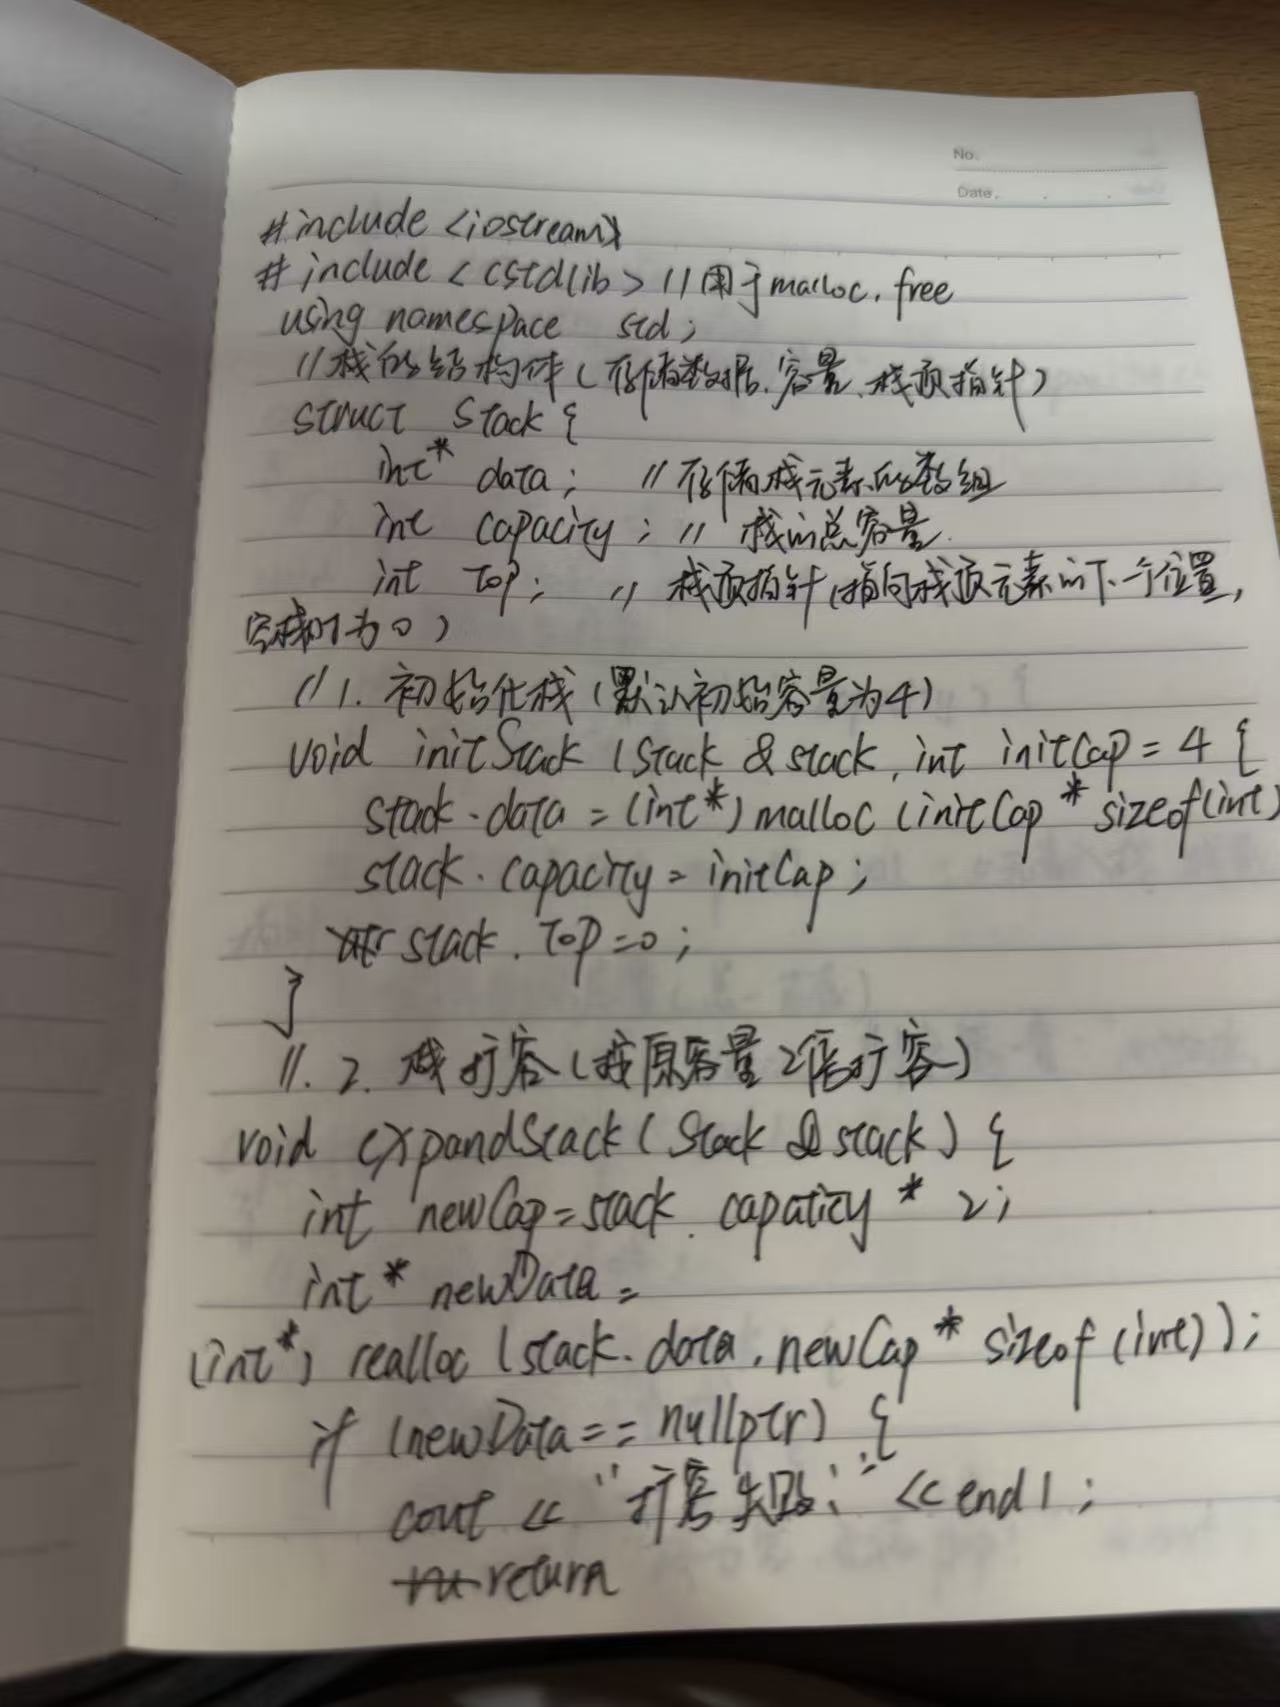 No.
Date.
#include <iostream>
#include <cstdlib> //用于malloc、free
using namespace std;
//栈的结构体(存储数据、容量、栈顶指针)
struct Stack {
int* data; //存储栈元素的数组
int capacity; // 栈的总容量
int top; // 栈顶指针(指向栈顶元素的下一个位置,
空栈时为0)
// 1. 初始化栈(默认初始容量为4)
void initStack (Stack & stack, int initCap = 4 {
stack.data = (int*) malloc (initCap * sizeof(int)
stack.capacity = initCap;
stack.top=0;
}
//. 2. 栈扩容(按原容量2倍扩容)
void expandStack (Stack & stack) {
int newCap=stack.capaticy * 2;
int* newData =
(int*) realloc (stack.data, newCap * sizeof (int));
if (newData == nullptr) {
cout << "扩容失败!" << endl;
return